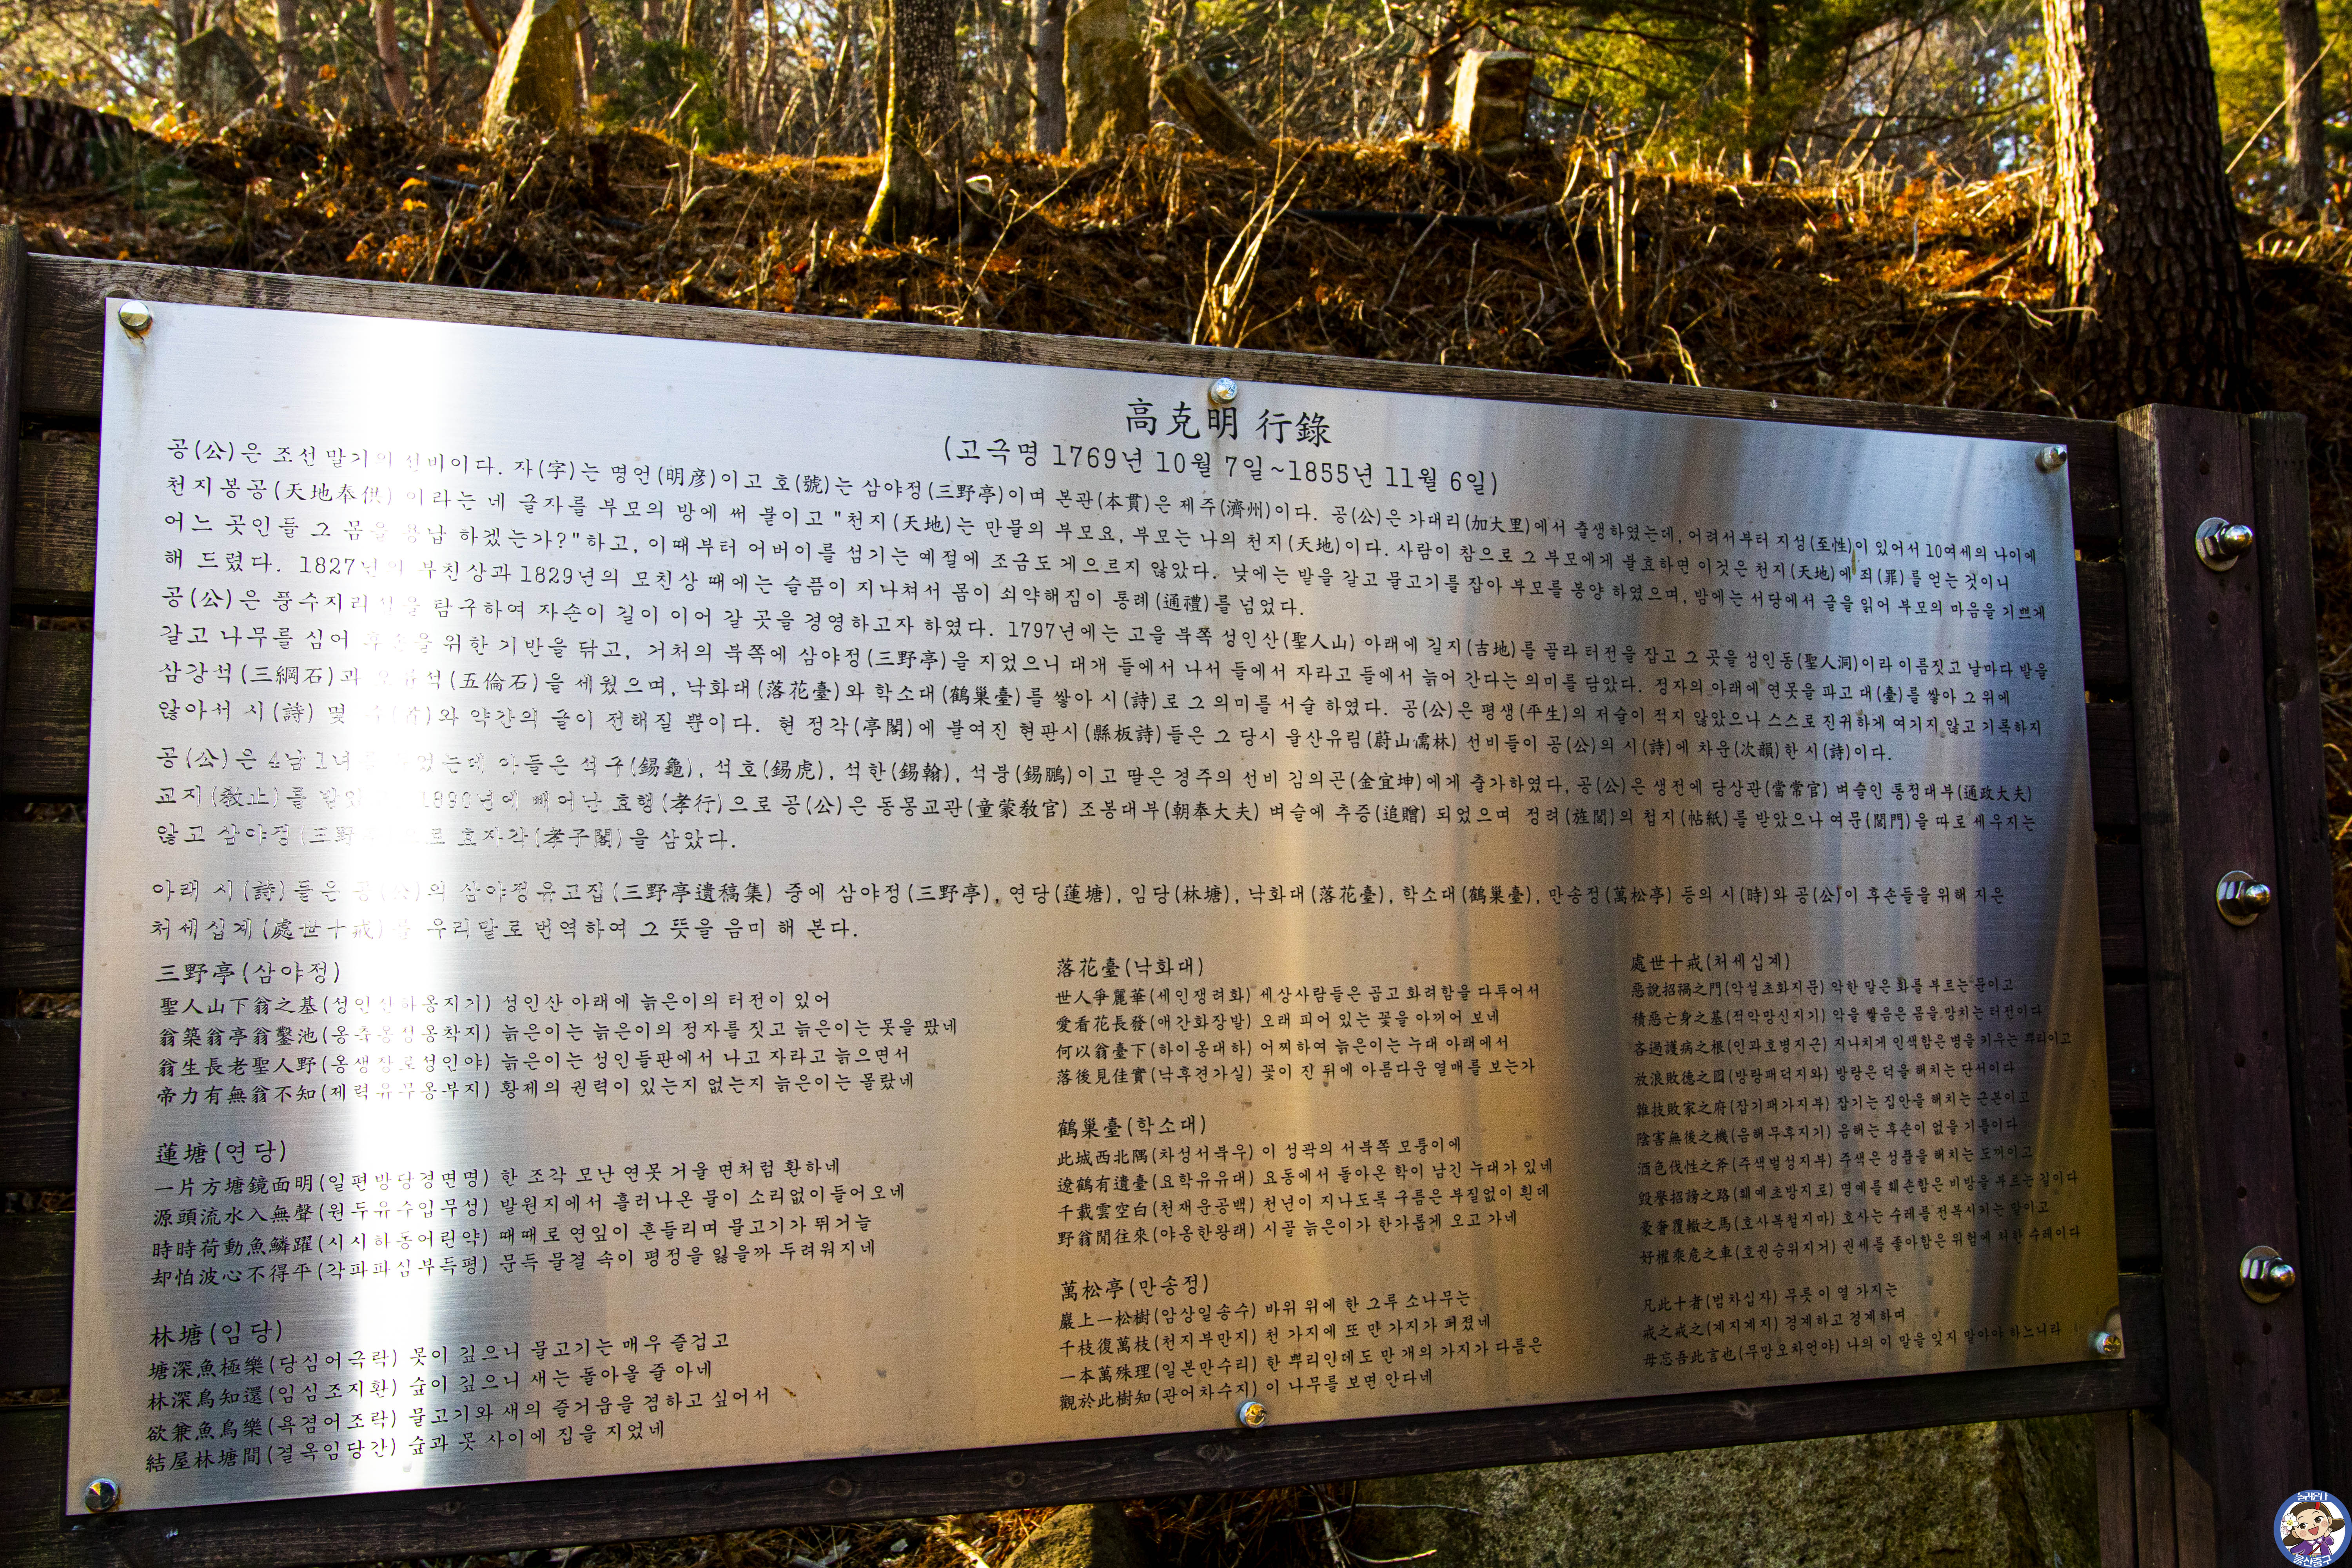 高克明 行錄
(고극명 1769년 10월 7일~1855년 11월 6일)
공(公)은 조선 말기의 선비이다. 자(字)는 명언(明彦)이고 호(號)는 삼야정(三野亭)이며 본관(本貫)은 제주(濟州)이다. 공(公)은 가대리(加大里)에서 출생하였는데, 어려서부터 지성(至性)이 있어서 10여세의 나이에
천지봉공(天地奉供) 이라는 네 글자를 부모의 방에 써 붙이고 "천지(天地)는 만물의 부모요, 부모는 나의 천지(天地)이다. 사람이 참으로 그 부모에게 불효하면 이것은 천지(天地)에 죄(罪)를 얻는 것이니
어느 곳인들 그 몸을 용납 하겠는가?"하고, 이때부터 어버이를 섬기는 예절에 조금도 게으르지 않았다. 낮에는 밭을 갈고 물고기를 잡아 부모를 봉양 하였으며, 밤에는 서당에서 글을 읽어 부모의 마음을 기쁘게
해 드렸다. 1827년의 부친상과 1829년의 모친상 때에는 슬픔이 지나쳐서 몸이 쇠약해짐이 통례(通禮)를 넘었다.
공(公)은 풍수지리설을 탐구하여 자손이 길이 이어 갈 곳을 경영하고자 하였다. 1797년에는 고을 북쪽 성인산(聖人山) 아래에 길지(吉地)를 골라 터전을 잡고 그 곳을 성인동(聖人洞)이라 이름짓고 날마다 밭을
갈고 나무를 심어 후손을 위한 기반을 닦고, 거처의 북쪽에 삼야정(三野亭)을 지었으니 대개 들에서 나서 들에서 자라고 들에서 늙어 간다는 의미를 담았다. 정자의 아래에 연못을 파고 대(臺)를 쌓아 그 위에
삼강석(三綱石)과 오륜석(五倫石)을 세웠으며, 낙화대(落花臺)와 학소대(鶴巢臺)를 쌓아 시(詩)로 그 의미를 서술 하였다. 공(公)은 평생(平生)의 저술이 적지 않았으나 스스로 진귀하게 여기지 않고 기록하지
않아서 시(詩) 몇 수(首)와 약간의 글이 전해질 뿐이다. 현 정각(亭閣)에 붙여진 현판시(縣板詩)들은 그 당시 울산유림(蔚山儒林) 선비들이 공(公)의 시(詩)에 차운(次韻)한 시(詩)이다.
공(公)은 4남 1녀를 두었는데 아들은 석구(錫龜), 석호(錫虎), 석한(錫翰), 석붕(錫鵬)이고 딸은 경주의 선비 김의곤(金宜坤)에게 출가하였다, 공(公)은 생전에 당상관(當常官) 벼슬인 통정대부(通政大夫)
교지(敎止)를 받았 1890년에 빼어난 효행(孝行)으로 공(公)은 동몽교관(童蒙敎官) 조봉대부(朝奉大夫) 벼슬에 추증(追贈) 되었으며 정려(旌閭)의 첩지(帖紙)를 받았으나 여문(閭門)을 따로 세우지는
않고 삼야정(三野亭)으로 효자각(孝子閣)을 삼았다.
아래 시(詩)들은 공(公)의 삼야정유고집(三野亭遺稿集) 중에 삼야정(三野亭), 연당(蓮塘), 임당(林塘), 낙화대(落花臺), 학소대(鶴巢臺), 만송정(萬松亭) 등의 시(時)와 공(公)이 후손들을 위해 지은
처세십계(處世十戒)를 우리말로 번역하여 그 뜻을 음미 해 본다.
三野亭(삼야정)
聖人山下翁之基(성인산하옹지기) 성인산 아래에 늙은이의 터전이 있어
翁築翁亭翁鑿池(옹축옹정옹착지) 늙은이는 늙은이의 정자를 짓고 늙은이는 못을 팠네
翁生長老聖人野(옹생장로성인야) 늙은이는 성인들판에서 나고 자라고 늙으면서
帝力有無翁不知(제력유무옹부지) 황제의 권력이 있는지 없는지 늙은이는 몰랐네
蓮塘(연당)
一片方塘鏡面明(일편방당경면명) 한 조각 모난 연못 거울 면처럼 환하네
源頭流水入無聲(원두유수입무성) 발원지에서 흘러나온 물이 소리없이 들어오네
時時荷動魚鱗躍(시시하동어린약) 때때로 연잎이 흔들리며 물고기가 뛰거늘
却怕波心不得平(각파파심부득평) 문득 물결 속이 평정을 잃을까 두려워지네
林塘(임당)
塘深魚極樂(당심어극락) 못이 깊으니 물고기는 매우 즐겁고
林深鳥知還(임심조지환) 숲이 깊으니 새는 돌아올 줄 아네
欲兼魚鳥樂(욕겸어조락) 물고기와 새의 즐거움을 겸하고 싶어서
結屋林塘間(결옥임당간) 숲과 못 사이에 집을 지었네
落花臺(낙화대)
世人爭麗華(세인쟁려화) 세상사람들은 곱고 화려함을 다투어서
愛看花長發(애간화장발) 오래 피어 있는 꽃을 아끼어 보네
何以翁臺下(하이옹대하) 어찌하여 늙은이는 누대 아래에서
落後見佳實(낙후견가실) 꽃이 진 뒤에 아름다운 열매를 보는가
鶴巢臺(학소대)
此城西北隅(차성서북우) 이 성곽의 서북쪽 모퉁이에
遼鶴有遺臺(요학유유대) 요동에서 돌아온 학이 남긴 누대가 있네
千載雲空白(천재운공백) 천년이 지나도록 구름은 부질없이 흰데
野翁閒往來(야옹한왕래) 시골 늙은이가 한가롭게 오고 가네
萬松亭(만송정)
巖上一松樹(암상일송수) 바위 위에 한 그루 소나무는
千枝復萬枝(천지부만지) 천 가지에 또 만 가지가 퍼졌네
一本萬殊理(일본만수리) 한 뿌리인데도 만 개의 가지가 다름은
觀於此樹知(관어차수지) 이 나무를 보면 안다네
處世十戒(처세십계)
惡說招禍之門(악설초화지문) 악한 말은 화를 부르는 문이고
積惡亡身之基(적악망신지기) 악을 쌓음은 몸을 망치는 터전이다
吝過護病之根(인과호병지근) 지나치게 인색함은 병을 키우는 뿌리이고
放浪敗德之囮(방랑패덕지와) 방랑은 덕을 해치는 단서이다
雜技敗家之府(잡기패가지부) 잡기는 집안을 해치는 근본이고
陰害無後之機(음해무후지기) 음해는 후손이 없을 기틀이다
酒色伐性之斧(주색벌성지부) 주색은 성품을 해치는 도끼이고
毁譽招謗之路(훼예초방지로) 명예를 훼손함은 비방을 부르는 길이다
豪奢覆轍之馬(호사복철지마) 호사는 수레를 전복시키는 말이고
好權乘危之車(호권승위지거) 권세를 좋아함은 위험에 처한 수레이다
凡此十者(범차십자) 무릇 이 열 가지는
戒之戒之(계지계지) 경계하고 경계하며
毋忘吾此言也(무망오차언야) 나의 이 말을 잊지 말아야 하느니라
울산중구